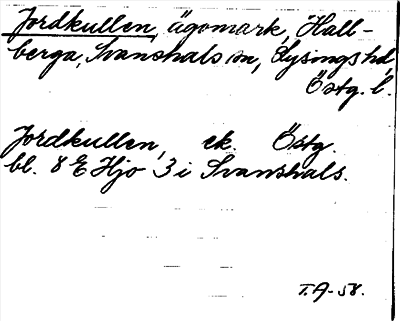 Jordkullen, ägomark, Hall-
berga, Svanshals sn, Lysings hd,
Östg. l.
Jordkullen, ek. Östg.
bl. 8 E Hjo 3 i Svanshals.
T.A-58.